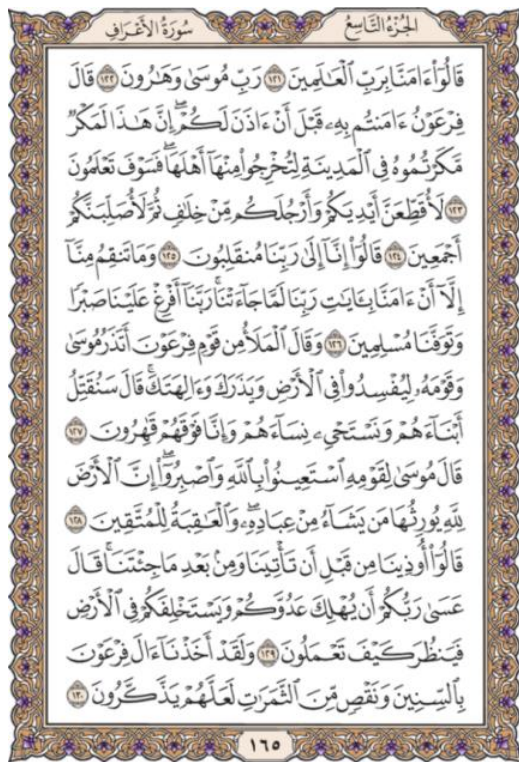 الجُزْءُ التَّاسِعُ سُورَةُ الأَعْرَافِ
قَالُوٓا۟ ءَامَنَّا بِرَبِّ ٱلْعَٰلَمِينَ ١٢١ رَبِّ مُوسَىٰ وَهَٰرُونَ ١٢٢ قَالَ
فِرْعَوْنُ ءَامَنتُم بِهِۦ قَبْلَ أَنْ ءَاذَنَ لَكُمْ ۖ إِنَّ هَٰذَا لَمَكْرٌ
مَّكَرْتُمُوهُ فِى ٱلْمَدِينَةِ لِتُخْرِجُوا۟ مِنْهَآ أَهْلَهَا ۖ فَسَوْفَ تَعْلَمُونَ
١٢٣ لَأُقَطِّعَنَّ أَيْدِيَكُمْ وَأَرْجُلَكُم مِّنْ خِلَٰفٍ ثُمَّ لَأُصَلِّبَنَّكُمْ
أَجْمَعِينَ ١٢٤ قَالُوٓا۟ إِنَّآ إِلَىٰ رَبِّنَا مُنقَلِبُونَ ١٢٥ وَمَا تَنقِمُ مِنَّآ
إِلَّآ أَنْ ءَامَنَّا بِـَٔايَٰتِ رَبِّنَا لَمَّا جَآءَتْنَا ۚ رَبَّنَآ أَفْرِغْ عَلَيْنَا صَبْرًا
وَتَوَفَّنَا مُسْلِمِينَ ١٢٦ وَقَالَ ٱلْمَلَأُ مِن قَوْمِ فِرْعَوْنَ أَتَذَرُ مُوسَىٰ
وَقَوْمَهُۥ لِيُفْسِدُوا۟ فِى ٱلْأَرْضِ وَيَذَرَكَ وَءَالِهَتَكَ ۚ قَالَ سَنُقَتِّلُ
أَبْنَآءَهُمْ وَنَسْتَحْىِۦ نِسَآءَهُمْ وَإِنَّا فَوْقَهُمْ قَٰهِرُونَ ١٢٧
قَالَ مُوسَىٰ لِقَوْمِهِ ٱسْتَعِينُوا۟ بِٱللَّهِ وَٱصْبِرُوٓا۟ ۖ إِنَّ ٱلْأَرْضَ
لِلَّهِ يُورِثُهَا مَن يَشَآءُ مِنْ عِبَادِهِۦ ۖ وَٱلْعَٰقِبَةُ لِلْمُتَّقِينَ ١٢٨
قَالُوٓا۟ أُوذِينَا مِن قَبْلِ أَن تَأْتِيَنَا وَمِنۢ بَعْدِ مَا جِئْتَنَا ۚ قَالَ
عَسَىٰ رَبُّكُمْ أَن يُهْلِكَ عَدُوَّكُمْ وَيَسْتَخْلِفَكُمْ فِى ٱلْأَرْضِ
فَيَنظُرَ كَيْفَ تَعْمَلُونَ ١٢٩ وَلَقَدْ أَخَذْنَآ ءَالَ فِرْعَوْنَ
بِٱلسِّنِينَ وَنَقْصٍ مِّنَ ٱلثَّمَرَٰتِ لَعَلَّهُمْ يَذَّكَّرُونَ ١٣٠
١٦٥